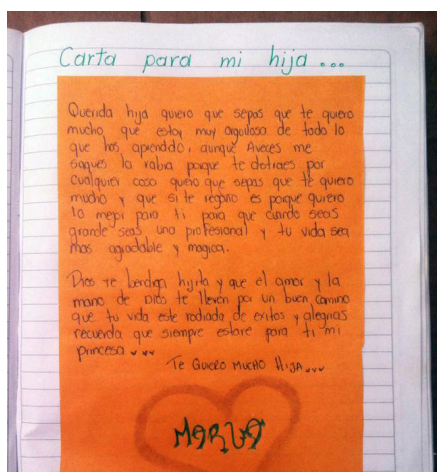 Carta para mi hija...
Querida hija quiero que sepas que te quiero
mucho, que estoy muy orgullosa de todo lo
que has aprendido, aunque Aveces me
saques la rabia porque te distraes por
cualquier cosa quiero que sepas que te quiero
mucho y que si te regaño es porque quiero
lo mejor para ti para que cuando seas
grande seas una profesional y tu vida sea
mas agradable y magica.
Dios te bendiga hijita y que el amor y la
mano de Dios te lleven por un buen camino
que tu vida este rodiada de exitos y alegrias
recuerda que siempre estare para ti mi
princesa
Te Quiero mucho Hija...